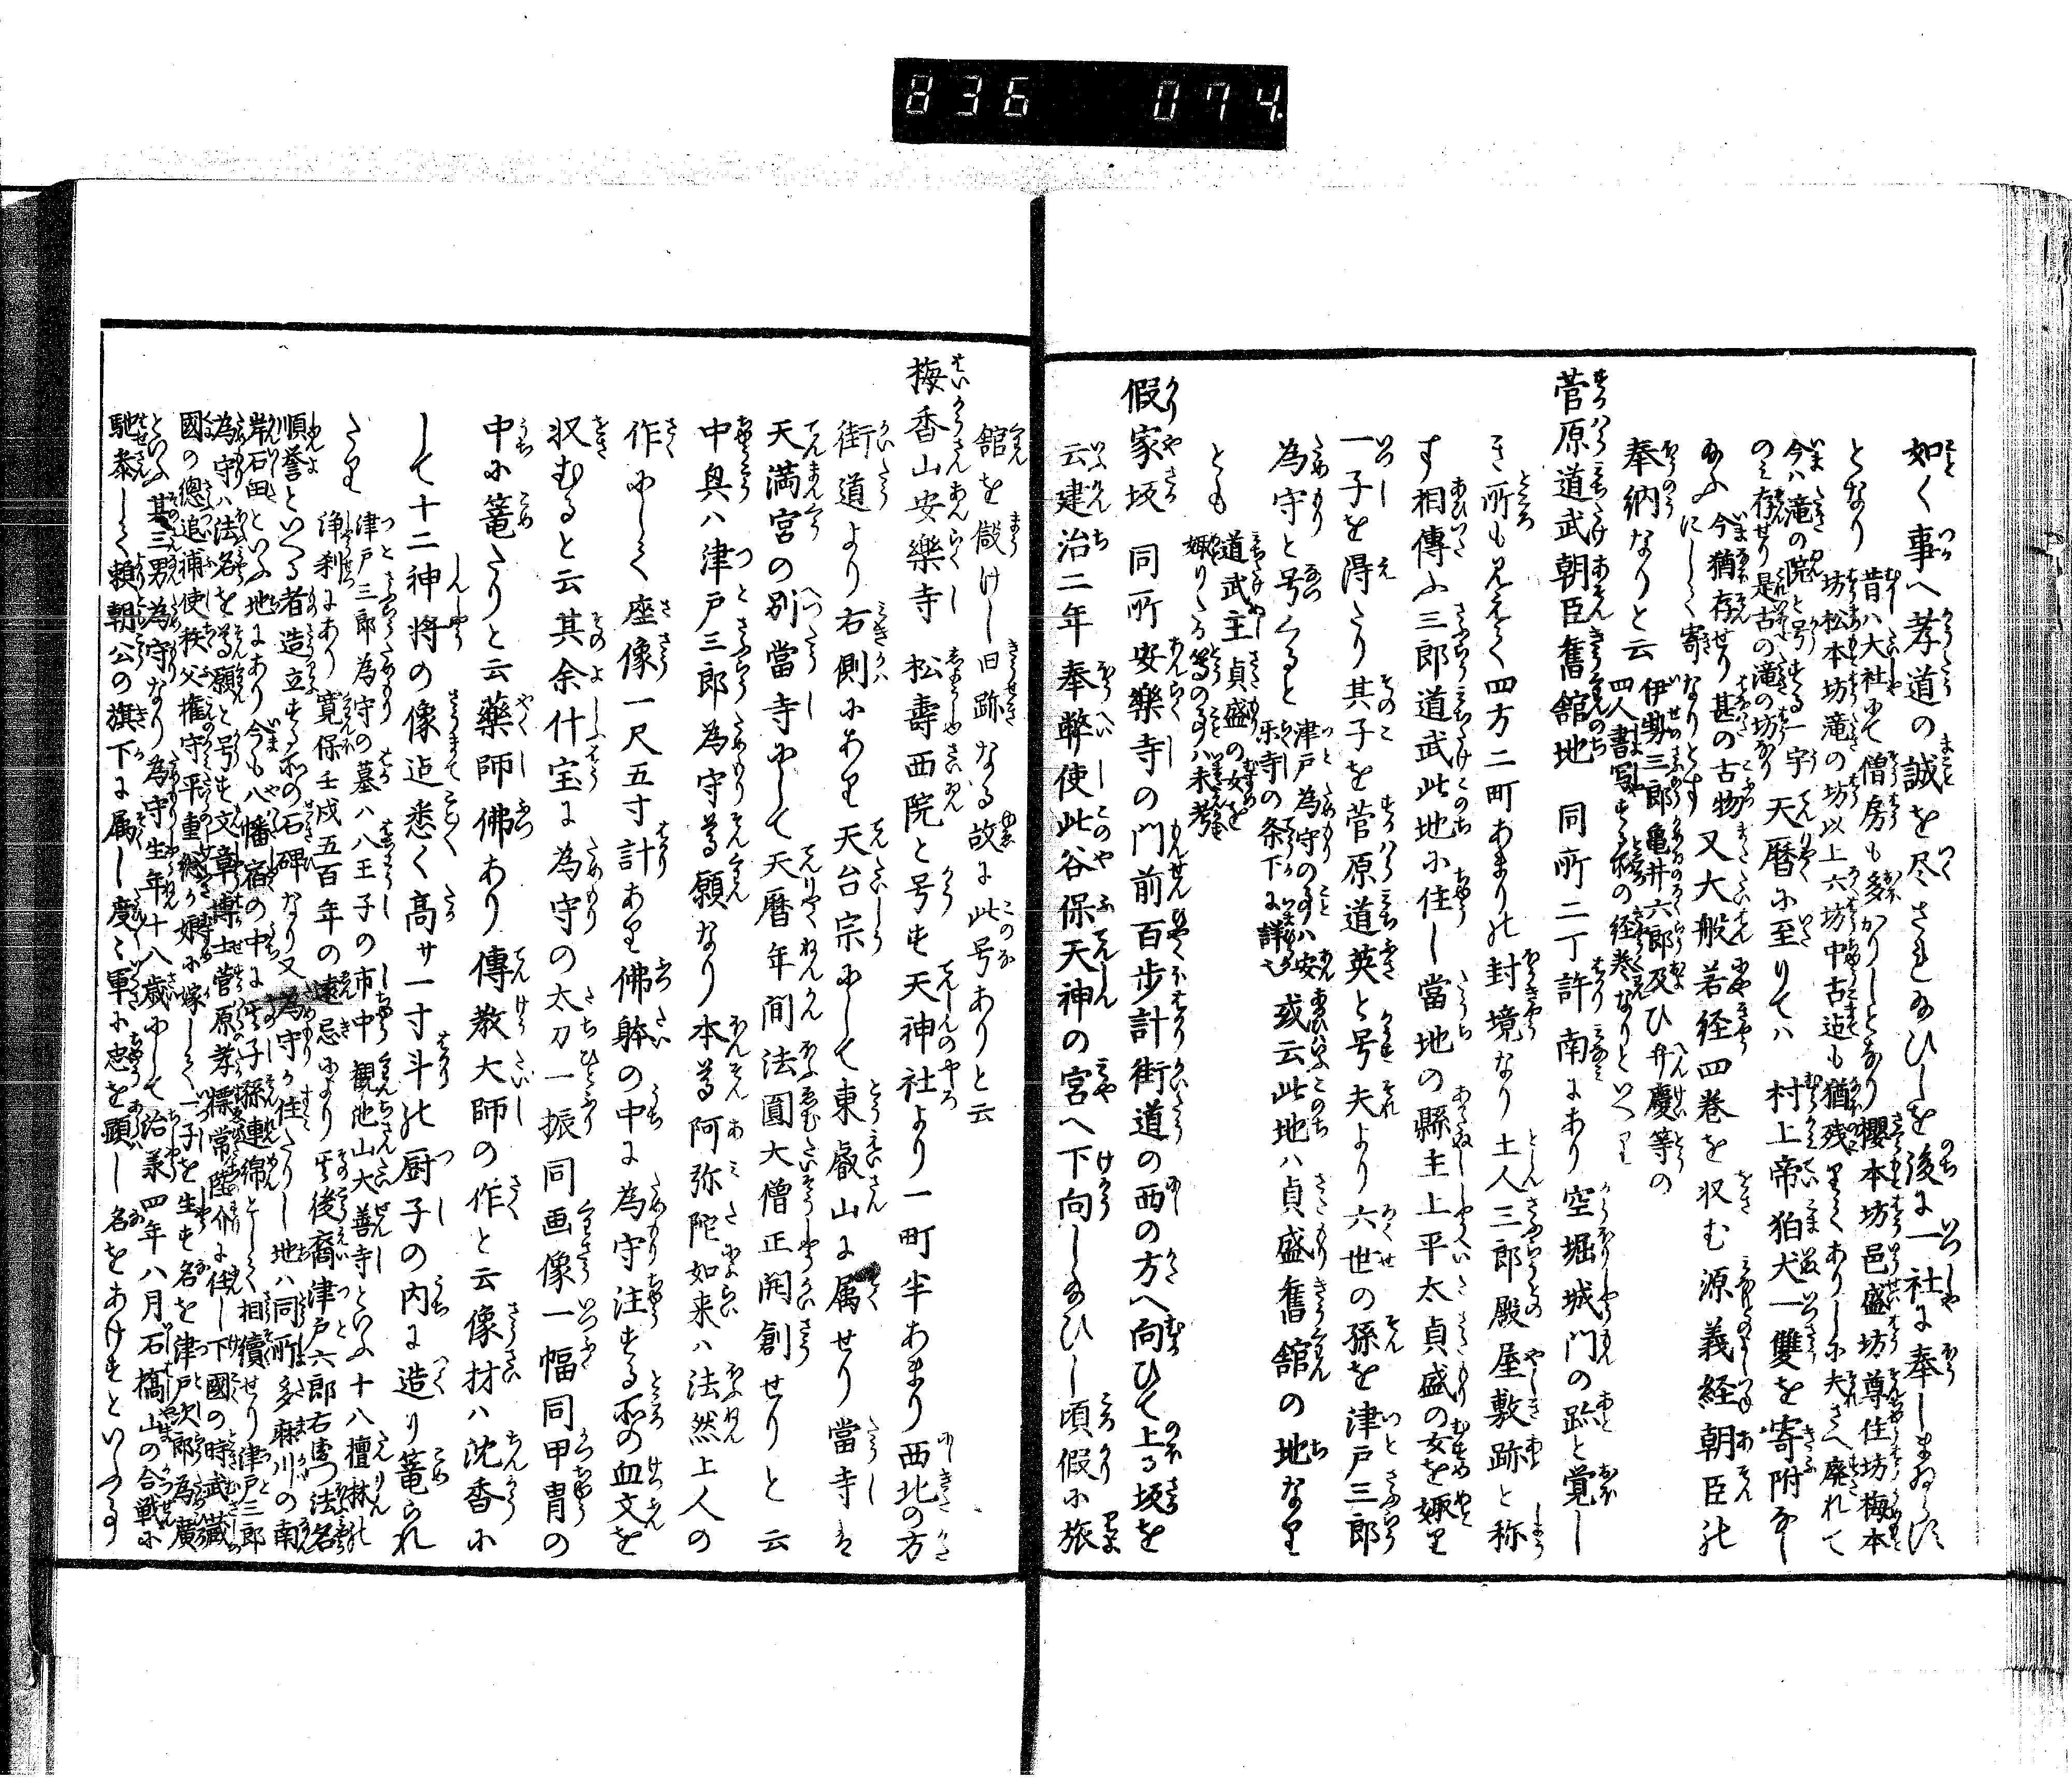 836 074.
如く事へ孝道の誠を尽されたまひしを後に一社に奉しまゐらす
となり
昔ハ大社にて僧房も多かりしとなり櫻本坊邑盛坊尊住坊梅本
坊松本坊滝の坊以上六坊中古迠も猶残りてありしに夫さへ廃れて
今ハ滝の院と号する一宇
のミ存せり是古の滝の坊なり
天暦に至りてハ
村上帝狛犬一雙を寄附なし
たまふ
今猶存せり甚の古物
にして寄なりとす
又大般若経四巻を収む源義経朝臣の
奉納なりと云
伊勢三郎亀井六郎及ひ弁慶等の
四人書写する所の経巻なりといへり
菅原道武朝臣舊舘地 同所二丁許南にあり空堀城門の跡と覚し
き所も見えて四方二町あまりの封境なり土人三郎殿屋敷跡と称
す相傳ふ三郎道武此地に住し當地の縣主上平太貞盛の女を娵り
一子を淂たり其子を菅原道英と号夫より六世の孫を津戸三郎
為守と号くると
津戸為守の事ハ安
楽寺の条下に詳也
或云此地ハ貞盛舊舘の地なり
とも
道武主貞盛の女を
娵りたる等の事ハ未考
假家坂 同所安樂寺の門前百歩計街道の西の方へ向ひて上る坂を
云建治二年奉幣使此谷保天神の宮へ下向したまひし頃假に旅
舘を設けし旧跡なる故に此号ありと云
梅香山安樂寺 松壽西院と号す天神社より一町半あまり西北の方
街道より右側にあり天台宗にして東叡山に属せり當寺は
天満宮の別當寺にして天暦年間法圓大僧正開創せりと云
中興ハ津戸三郎為守尊願なり本尊阿弥陀如来ハ法然上人の
作にして座像一尺五寸計あり佛躰の中に為守注する所の血文を
収むると云其余什宝に為守の太刀一振同画像一幅同甲冑の
中に篭たりと云藥師佛あり傳教大師の作と云像材ハ沈香に
して十二神将の像迠悉く高サ一寸斗の厨子の内に造り篭られ
たり
津戸三郎為守の墓ハ八王子の市中観池山大善寺といふ十八檀林の
浄刹にあり寛保壬戌五百年の遠忌により其後裔津戸六郎右衛門法名
順誉といへる者造立する所の石碑なり又為守か住たりし地ハ同所多麻川の南
岸石田といふ地にあり今も八幡宿の中に其子孫連綿として相續せり津戸三郎
為守ハ法名を尊願と号す文章博士菅原孝標常陸介に任し下國の時武藏
國の總追浦使秩父権守平重綱か娘に嫁して一子を生す名を津戸次郎為廣
といふ其三男為守なり為守生年十八歳にして治承四年八月石橋山の合戦に
馳参して頼朝公の旗下に属し度々軍に忠を顕し名をあけたといふ事